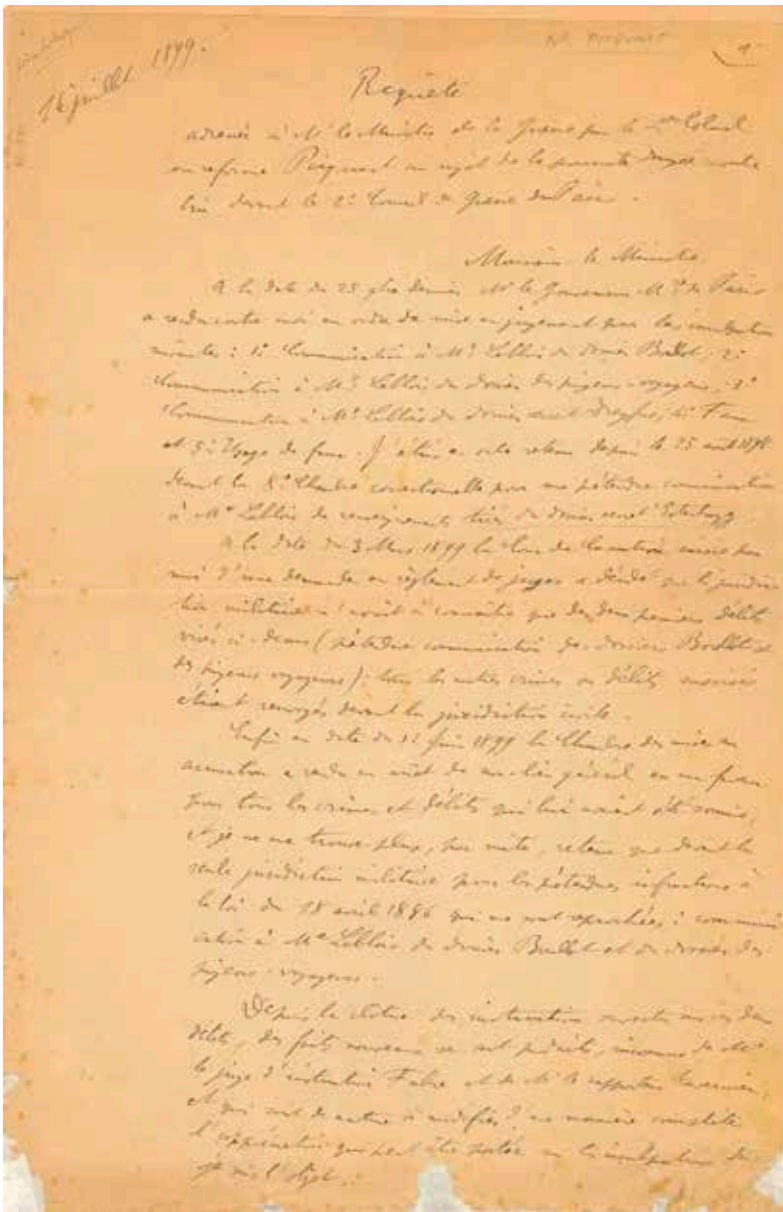 16 juillet 1899.
Requête
adressée à Mr le Ministre de la Guerre par le Lt Colonel
en réforme Picquart au sujet de la poursuite dirigée contre
lui devant le 2e Conseil de Guerre de Paris.
Monsieur le Ministre
A la date du 25 9bre dernier Mr le Gouverneur Mre de Paris
a rendu contre moi un ordre de mise en jugement pour les inculpations
suivantes : 1° Communication à Me Leblois du dossier Boullot, 2°
Communication à Me Leblois du dossier des pigeons-voyageurs, 3°
Communication à Me Leblois du dossier secret Dreyfus, 4° Faux
et 5° Usage de faux. J'étais en outre retenu depuis le 25 août 1898
devant la 8e Chambre correctionnelle pour une prétendue communication
à Me Leblois de renseignements tirés du dossier secret Esterhazy
A la date du 3 Mars 1899 la Cour de Cassation saisie par
moi d'une demande en règlement de juges a décidé que la juridic
tion militaire n'avait à connaître que des deux premiers délits
visés ci-dessus (prétendue communication des dossiers Boullot et
des pigeons voyageurs) ; tous les autres crimes ou délits
étant renvoyés devant la juridiction civile.
Enfin en date du 13 Juin 1899 la Chambre des mises en
accusation a rendu un arrêt de non-lieu général en ma faveur
pour tous les crimes et délits qui lui avaient été soumis,
et je ne me trouve plus, par suite, retenu que devant la
seule juridiction militaire pour les prétendues infractions à
la loi du 18 avril 1886 qui me sont reprochées : communi
cation à Me Leblois du dossier Boullot et du dossier des
pigeons-voyageurs.
Depuis la clôture des instructions ouvertes sur ces deux
délits, des faits nouveaux se sont produits, inconnus de Mr
le juge d'instruction Fabre et de Mr le rapporteur Tavernier,
et qui sont de nature à modifier d'une manière complète
l'appréciation qui peut être portée sur les inculpations dont
je suis l'objet :